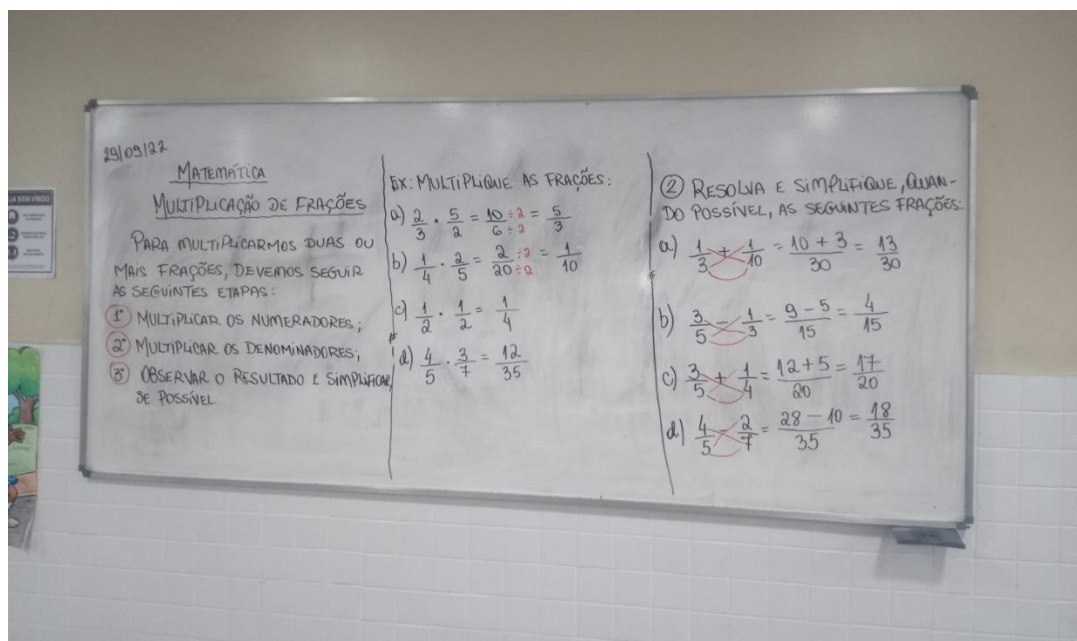 29/09/22
MATEMÁTICA
MULTIPLICAÇÃO DE FRAÇÕES
PARA MULTIPLICARMOS DUAS OU
MAIS FRAÇÕES, DEVEMOS SEGUIR
AS SEGUINTES ETAPAS:
1º MULTIPLICAR OS NUMERADORES;
2º MULTIPLICAR OS DENOMINADORES;
3º OBSERVAR O RESULTADO E SIMPLIFICAR,
SE POSSÍVEL.
EX: MULTIPLIQUE AS FRAÇÕES:
a) 2/3 . 5/2 = 10/6 ÷2/÷2 = 5/3
b) 1/4 . 2/5 = 2/20 ÷2/÷2 = 1/10
c) 1/2 . 1/2 = 1/4
d) 4/5 . 3/7 = 12/35
② RESOLVA E SIMPLIFIQUE, QUAN-
DO POSSÍVEL, AS SEGUINTES FRAÇÕES:
a) 1/3 + 1/10 = 10 + 3/30 = 13/30
b) 3/5 - 1/3 = 9 - 5/15 = 4/15
c) 3/5 + 1/4 = 12 + 5/20 = 17/20
d) 4/5 - 2/7 = 28 - 10/35 = 18/35